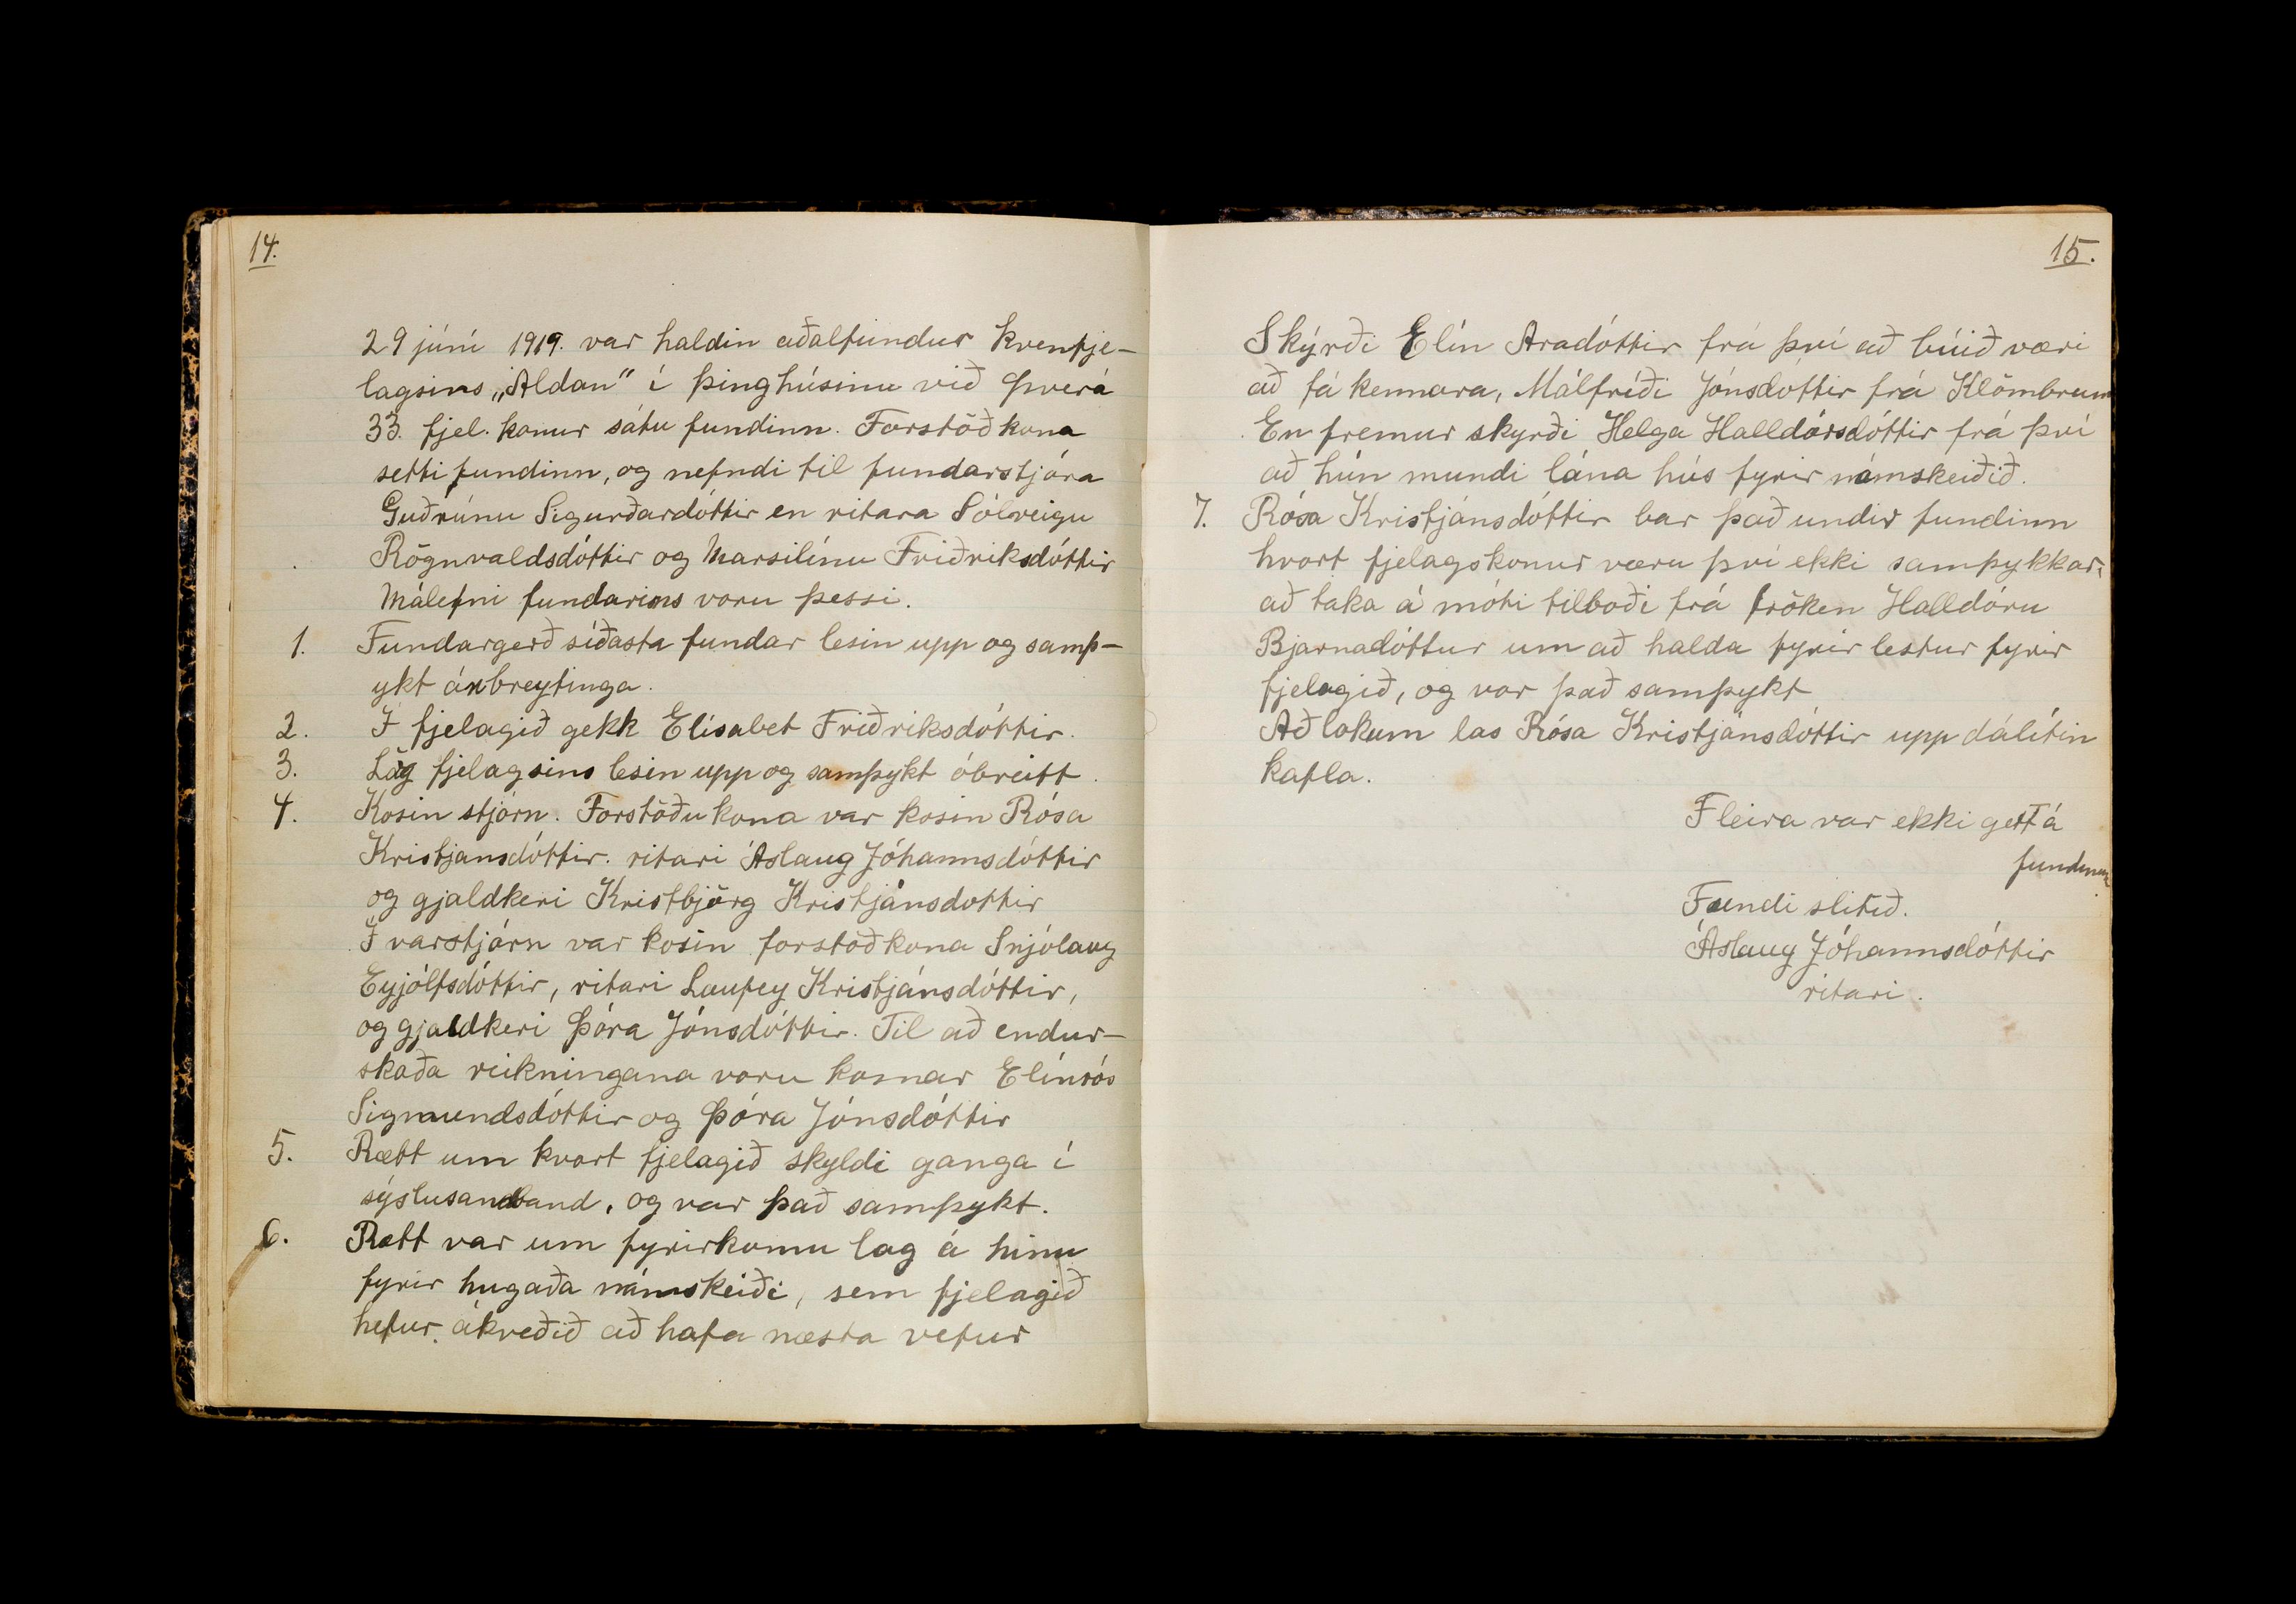 14.
29 júní 1919. var haldin aðalfundur kvenfje-
lagsins „Aldan" í þinghúsinu við Þverá
33. fjel. konur sátu fundinn. Forstöðkona
setti fundinn, og nefndi til fundarstjóra
Guðrúnu Sigurðardóttir en ritara Sólveigu
Rögnvaldsdóttir og Marsilínu Friðriksdóttir
Málefni fundarins voru þessi.
1. Fundargerð síðasta fundar lesin upp og samþ-
ykt án breytinga.
2. Í fjelagið gekk Elísabet Friðriksdóttir.
3. Lög fjelagsins lesin upp og samþykt óbreitt.
4. Kosin stjórn. Forstöðukona var kosin Rósa
Kristjansdóttir. ritari Áslaug Jóhannsdóttir
og gjaldkeri Kristbjörg Kristjánsdottir
Í varstjórn var kosin forstöðkona Snjólaug
Eyjólfsdóttir, ritari Laufey Kristjánsdóttir,
og gjaldkeri Þóra Jónsdóttir. Til að endur-
skoða reikningana voru kosnar Elínrós
Sigmundsdóttir og Þóra Jónsdóttir
5. Rætt um hvort fjelagið skyldi ganga í
sýslusamband, og var það samþykt.
6. Rætt var um fyrirkomu lag á hinu
fyrir hugaða námskeiði, sem fjelagið
hefur ákveðið að hafa næsta vetur
15.
Skýrði Elín Aradóttir frá því að búið væri
að fá kennara, Málfríði Jónsdóttir frá Klömbrum
En fremur skyrði Helga Halldórsdóttir frá því
að hún mundi lána hús fyrir námskeiðið.
7. Rósa Kristjánsdóttir bar það undir fundinn
hvort fjelagskonur væru því ekki samþykkar,
að taka á móti tilboði frá fröken Halldóru
Bjarnadóttur um að halda fyrir lestur fyrir
fjelagið, og var það samþykt
Að lokum las Rósa Kristjánsdóttir upp dálítin
kafla.
Fleira var ekki gert á
fundinum.
Fundi slitið.
Áslaug Jóhannsdóttir
ritari.